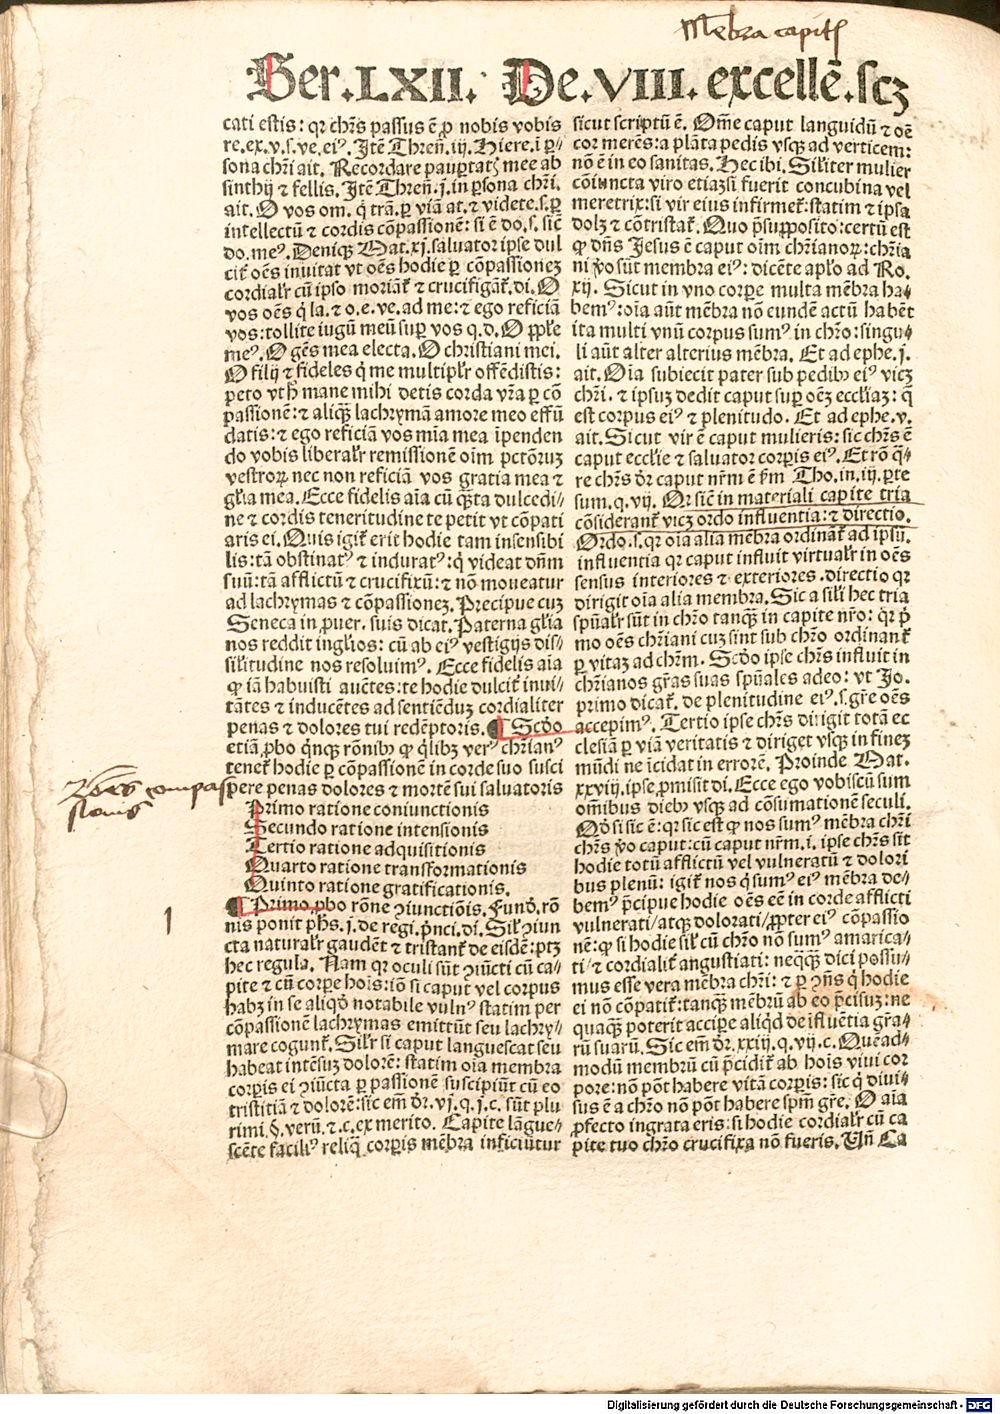 Mēbra capitꝭ
Ser. LXII. De. VIII. excellē. scꝫ
cati estis: qꝛ chr̄s passus ē ꝓ nobis vobis
re. ex. v. s. ve. eiꝰ. Itē Thren̄. iij. Hiere. i ꝑ⸗
sona chr̄i ait. Recordare pauꝑtatꝭ mee ab
sinthij ⁊ fellis. Itē Thren̄. j. in ꝑsona chr̄i.
ait. O vos om. q̇ trā. ꝑ viā at. ⁊ videte. s. ꝑ
intellectū ⁊ cordis cōpassionē: si ē do. s. sic
do. meꝰ. Deniqꝫ Mat. xj. saluator ipse dul
cit̄ oēs inuitat vt oēs hodie ꝑ cōpassionez
cordialr̄ cū ipso moriant̄ ⁊ crucifigant̄. di. O
vos oēs q̇ la. ⁊ o. e. ve. ad me: ⁊ ego reficiā
vos: tollite iugū meū suꝑ vos q. d. O ꝓple
meꝰ. O gēs mea electa. O christiani mei.
O filij ⁊ fideles q̇ me multiplr̄ offēdistis:
peto vt ħ mane mihi detis corda vr̄a ꝑ cō
passionē: ⁊ aliq̄ꝫ lachrymā amore meo effū
datis: ⁊ ego reficiā vos mīa mea īpenden
do vobis liberalr̄ remissionē oīm pctōꝝ
vestroꝝ nec non reficiā vos gratia mea ⁊
gl̄ia mea. Ecce fidelis aīa cū q̄ta dulcedi⸗
ne ⁊ cordis teneritudine te petit vt cōpati
aris ei. Quis igit̄ erit hodie tam insensibi
lis: tā obstinatꝰ ⁊ induratꝰ: q̇ videat dn̄m
suū: tā afflictū ⁊ crucifixū: ⁊ nō moueatur
ad lachrymas ⁊ cōpassionez. Precipue cuz
Seneca in ꝓuer. suis dicat. Paterna gl̄ia
nos reddit inglios: cū ab eiꝰ vestigijs dis⸗
sil̄itudine nos resoluimꝰ. Ecce fidelis aīa
ꝙ iā habuisti auētes: te hodie dulcit̄ inui⸗
tātes ⁊ inducētes ad sentiēduz cordialiter
penas ⁊ dolores tui redēptoris. ¶ Scd̄o
etiā ꝓbo q̇nqꝫ rōnibꝰ ꝙ q̇libꝫ verꝰ chr̄ianꝰ
tenet̄ hodie ꝑ cōpassionē in corde suo susci
pere penas dolores ⁊ mortē sui saluatoris
compas
sionis
Primo ratione coniunctionis
Secundo ratione intensionis
Tertio ratione adquisitionis
Quarto ratione transformationis
Quinto ratione gratificationis.
1
¶ Primo ꝓbo rōne ꝯiunctiōis. Fund̄. rō
nis ponit ph̄s. j. de regi. pr̄nci. di. Sil̄r ꝯiun
cta naturalr̄ gaudēt ⁊ tristant̄ de eisdē: ptꝫ
hec regula. Nam qꝛ oculi sūt ꝯiūcti cū ca⸗
pite ⁊ cū corpe hoīs: iō si caput vel corpus
habꝫ in se aliqd̄ notabile vulnꝰ statim per
cōpassionē lachrymas emittūt seu lachry⸗
mare cogunt̄. Sil̄r si caput languescat seu
habeat intēsuz dolorē: statim oīa membra
corꝑis ei ꝯiūcta ꝑ passionē suscipiūt cū eo
tristitiā ⁊ dolorē: sic em̄ dr̄. vj. q. j. c. sūt plu
rimi. §. verū. ⁊. c. ex merito. Capite lāgue⸗
scēte faciliꝰ reliq̄ corꝑis mēbra inficiūtur
sicut scriptū ē. Om̄e caput languidū ⁊ oē
cor merēs: a plāta pedis vsqꝫ ad verticem:
nō ē in eo sanitas. Hec ibi. Sil̄iter mulier
cōiuncta viro etiazsi fuerit concubina vel
meretrix: si vir eius infirmet̄: statim ⁊ ipsa
dolꝫ ⁊ cōtristat̄. Quo pr̄supposito: certū est
ꝙ dn̄s Jesus ē caput oīm chr̄ianoꝝ: chr̄ia
ni ꝟo sūt membra eiꝰ: dicēte apl̄o ad Ro.
xij. Sicut in vno corpe multa mēbra ha⸗
bemꝰ: oīa aūt mēbra nō eundē actū habēt
ita multi vnū corpus sumꝰ in chr̄o: singu⸗
li aūt alter alterius mēbra. Et ad ephe. j.
ait. Oīa subiecit pater sub pedibꝰ eiꝰ vicꝫ
chr̄i. ⁊ ipsuz dedit caput suꝑ oēz eccl̄iaz: q̄
est corpus eiꝰ ⁊ plenitudo. Et ad ephe. v.
ait. Sicut vir ē caput mulieris: sic chr̄s ē
caput eccl̄ie ⁊ saluator corꝑis eiꝰ. Et rō q̄⸗
re chr̄s dr̄ caput nr̄m ē ẜm Tho. in. iij. ꝑte
sum. q. vij. Qꝛ sic̄ in materiali capite tria
cōsiderant̄ vicꝫ ordo influentia: ⁊ directio.
Ordo. s. qꝛ oīa alia mēbra ordinat̄ ad ipsū.
influentia qꝛ caput influit virtualr̄ in oēs
sensus interiores ⁊ exteriores. directio qꝛ
dirigit oīa alia membra. Sic a sil̄i hec tria
spūalr̄ sūt in chr̄o tanqꝫ in capite nr̄o: qꝛ p̄
mo oēs chr̄iani cuz sint sub chr̄o ordinant̄
ꝑ vitaz ad chr̄m. Scd̄o ipse chr̄s influit in
chr̄ianos gr̄as suas spūales adeo: vt Jo.
primo dicat̄. de plenitudine eiꝰ. s. gr̄e oēs
accepimꝰ. Tertio ipse chr̄s dirigit totā ec
clesiā ꝑ viā veritatis ⁊ diriget vsqꝫ in finez
mūdi ne īcidat in errorē. Proinde Mat.
xxviij. ipse ꝓmisit di. Ecce ego vobiscū sum
om̄ibus diebꝰ vsqꝫ ad cōsumationē seculi.
Qd̄ si sic ē: qꝛ sic est ꝙ nos sumꝰ mēbra chr̄i
chr̄s ꝟo caput: cū caput nr̄m. i. ipse chr̄s sit
hodie totū afflictū vel vulneratū ⁊ dolori
bus plenū: igit̄ nos q̇ sumꝰ eiꝰ mēbra de⸗
bemꝰ p̄cipue hodie oēs eē in corde afflicti
vulnerati/ atqꝫ dolorati/ ꝓpter eiꝰ cōpassio
nē: ꝙ si hodie sil̄ cū chr̄o nō sumꝰ amarica⸗
ti/ ⁊ cordialit̄ angustiati: neq̄qꝫ dici possu⸗
mus esse vera mēbra chr̄i: ⁊ ꝑ ꝯn̄s q̇ hodie
ei nō cōpatit̄: tanqꝫ mēbrū ab eo p̄cisuz: ne
quaqꝫ poterit accipe aliqd̄ de īfluētia gr̄a⸗
rū suarū. Sic em̄ dr̄. xxiij. q. vij. c. Quēad⸗
modū membrū cū p̄cidit̄ ab hoīs viui cor
pore: nō pōt habere vitā corꝑis: sic q̇ diui⸗
sus ē a chr̄o nō pōt habere spm̄ gr̄e. O aīa
ꝓfecto ingrata eris: si hodie cordialr̄ cū ca
pite tuo chr̄o crucifixa nō fueris. Vn̄ Ca
Digitalisierung gefördert durch die Deutsche Forschungsgemeinschaft - DFG